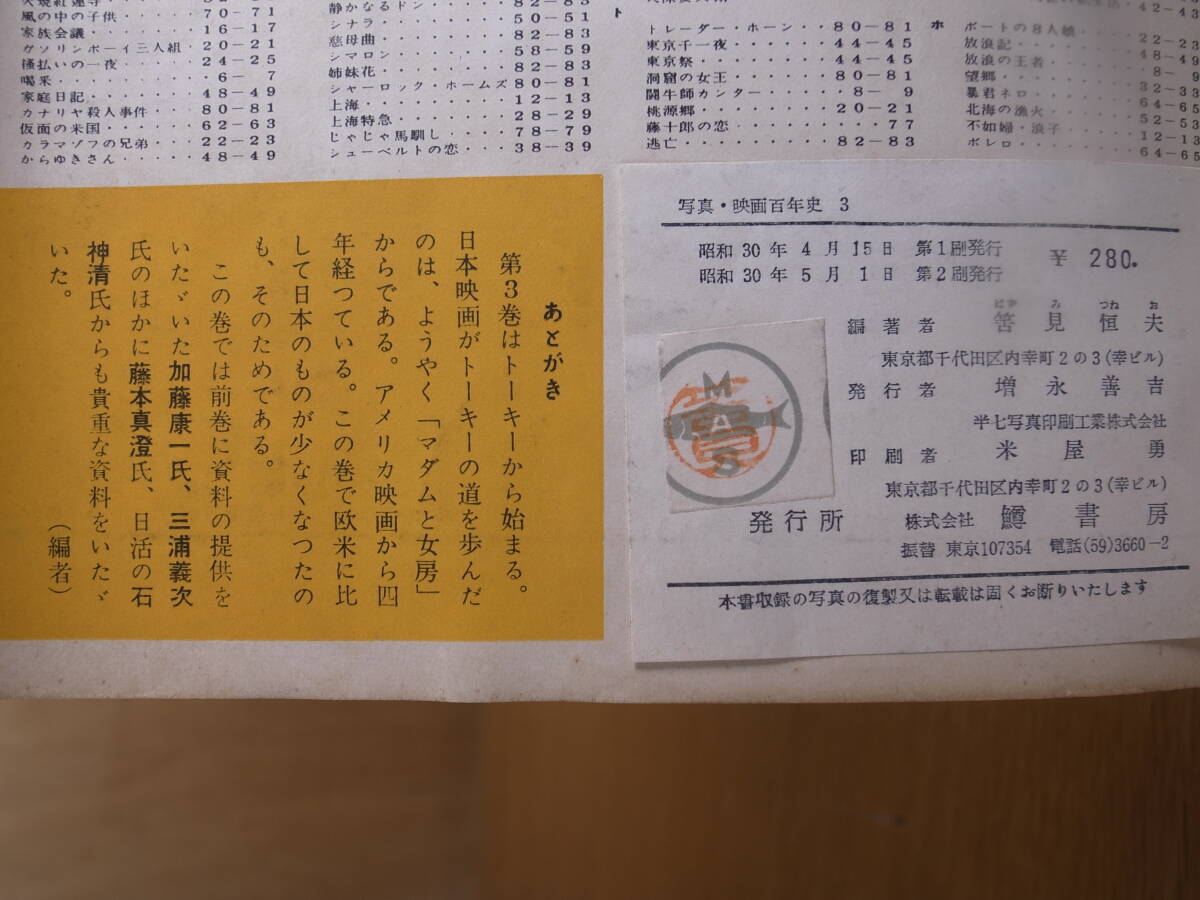 風の中の子供・・・・・70-71
家族会議・・・・・・・16-17
ガソリンボーイ三人組・20-21
掻払いの一夜・・・・・24-25
喝采・・・・・・・・・6-7
家庭日記・・・・・・・48-49
カナリヤ殺人事件・・・80-81
仮面の米国・・・・・・62-63
カラマゾフの兄弟・・・22-23
からゆきさん・・・・・48-49
静かなるドン・・・・・82-83
シナラ・・・・・・・・50-51
慈母曲・・・・・・・・82-83
シマロン・・・・・・・58-59
姉妹花・・・・・・・・82-83
シャーロック・ホームズ 80-81
上海・・・・・・・・・12-13
上海特急・・・・・・・28-29
じゃじゃ馬馴し・・・・78-79
シューベルトの恋・・・38-39
ト
トレーダー・ホーン・・80-81
東京千一夜・・・・・・44-45
東京祭・・・・・・・・44-45
洞窟の女王・・・・・・80-81
闘牛師カンター・・・・8-9
桃源郷・・・・・・・・20-21
藤十郎の恋・・・・・・77
逃亡・・・・・・・・・82-83
42-43
ホ
ボートの8人娘・・・・22-23
放浪記・・・・・・・・48-49
放浪の王者・・・・・・8-9
望郷・・・・・・・・・32-33
暴君ネロ・・・・・・・64-65
北海の漁火・・・・・・52-53
不如婦・浪子・・・・・12-13
ボレロ・・・・・・・・64-65
あとがき
第3巻はトーキーから始まる。
日本映画がトーキーの道を歩んだ
のは、ようやく「マダムと女房」
からである。アメリカ映画から四
年経つている。この巻で欧米に比
して日本のものが少なくなつたの
も、そのためである。
この巻では前巻に資料の提供を
いたゞいた加藤康一氏、三浦義次
氏のほかに藤本真澄氏、日活の石
神清氏からも貴重な資料をいたゞ
いた。
(編者)
写真・映画百年史 3
昭和30年4月15日 第1刷発行
昭和30年5月1日 第2刷発行
¥280.
はず み つね お
編著者 筈見恒夫
東京都千代田区内幸町2の3(幸ビル)
発行者 増永善吉
半七写真印刷工業株式会社
印刷者 米屋勇
東京都千代田区内幸町2の3(幸ビル)
発行所 株式会社 鱒書房
振替 東京107354 電話(59)3660-2
本書収録の写真の復製又は転載は固くお断りいたします
MAS